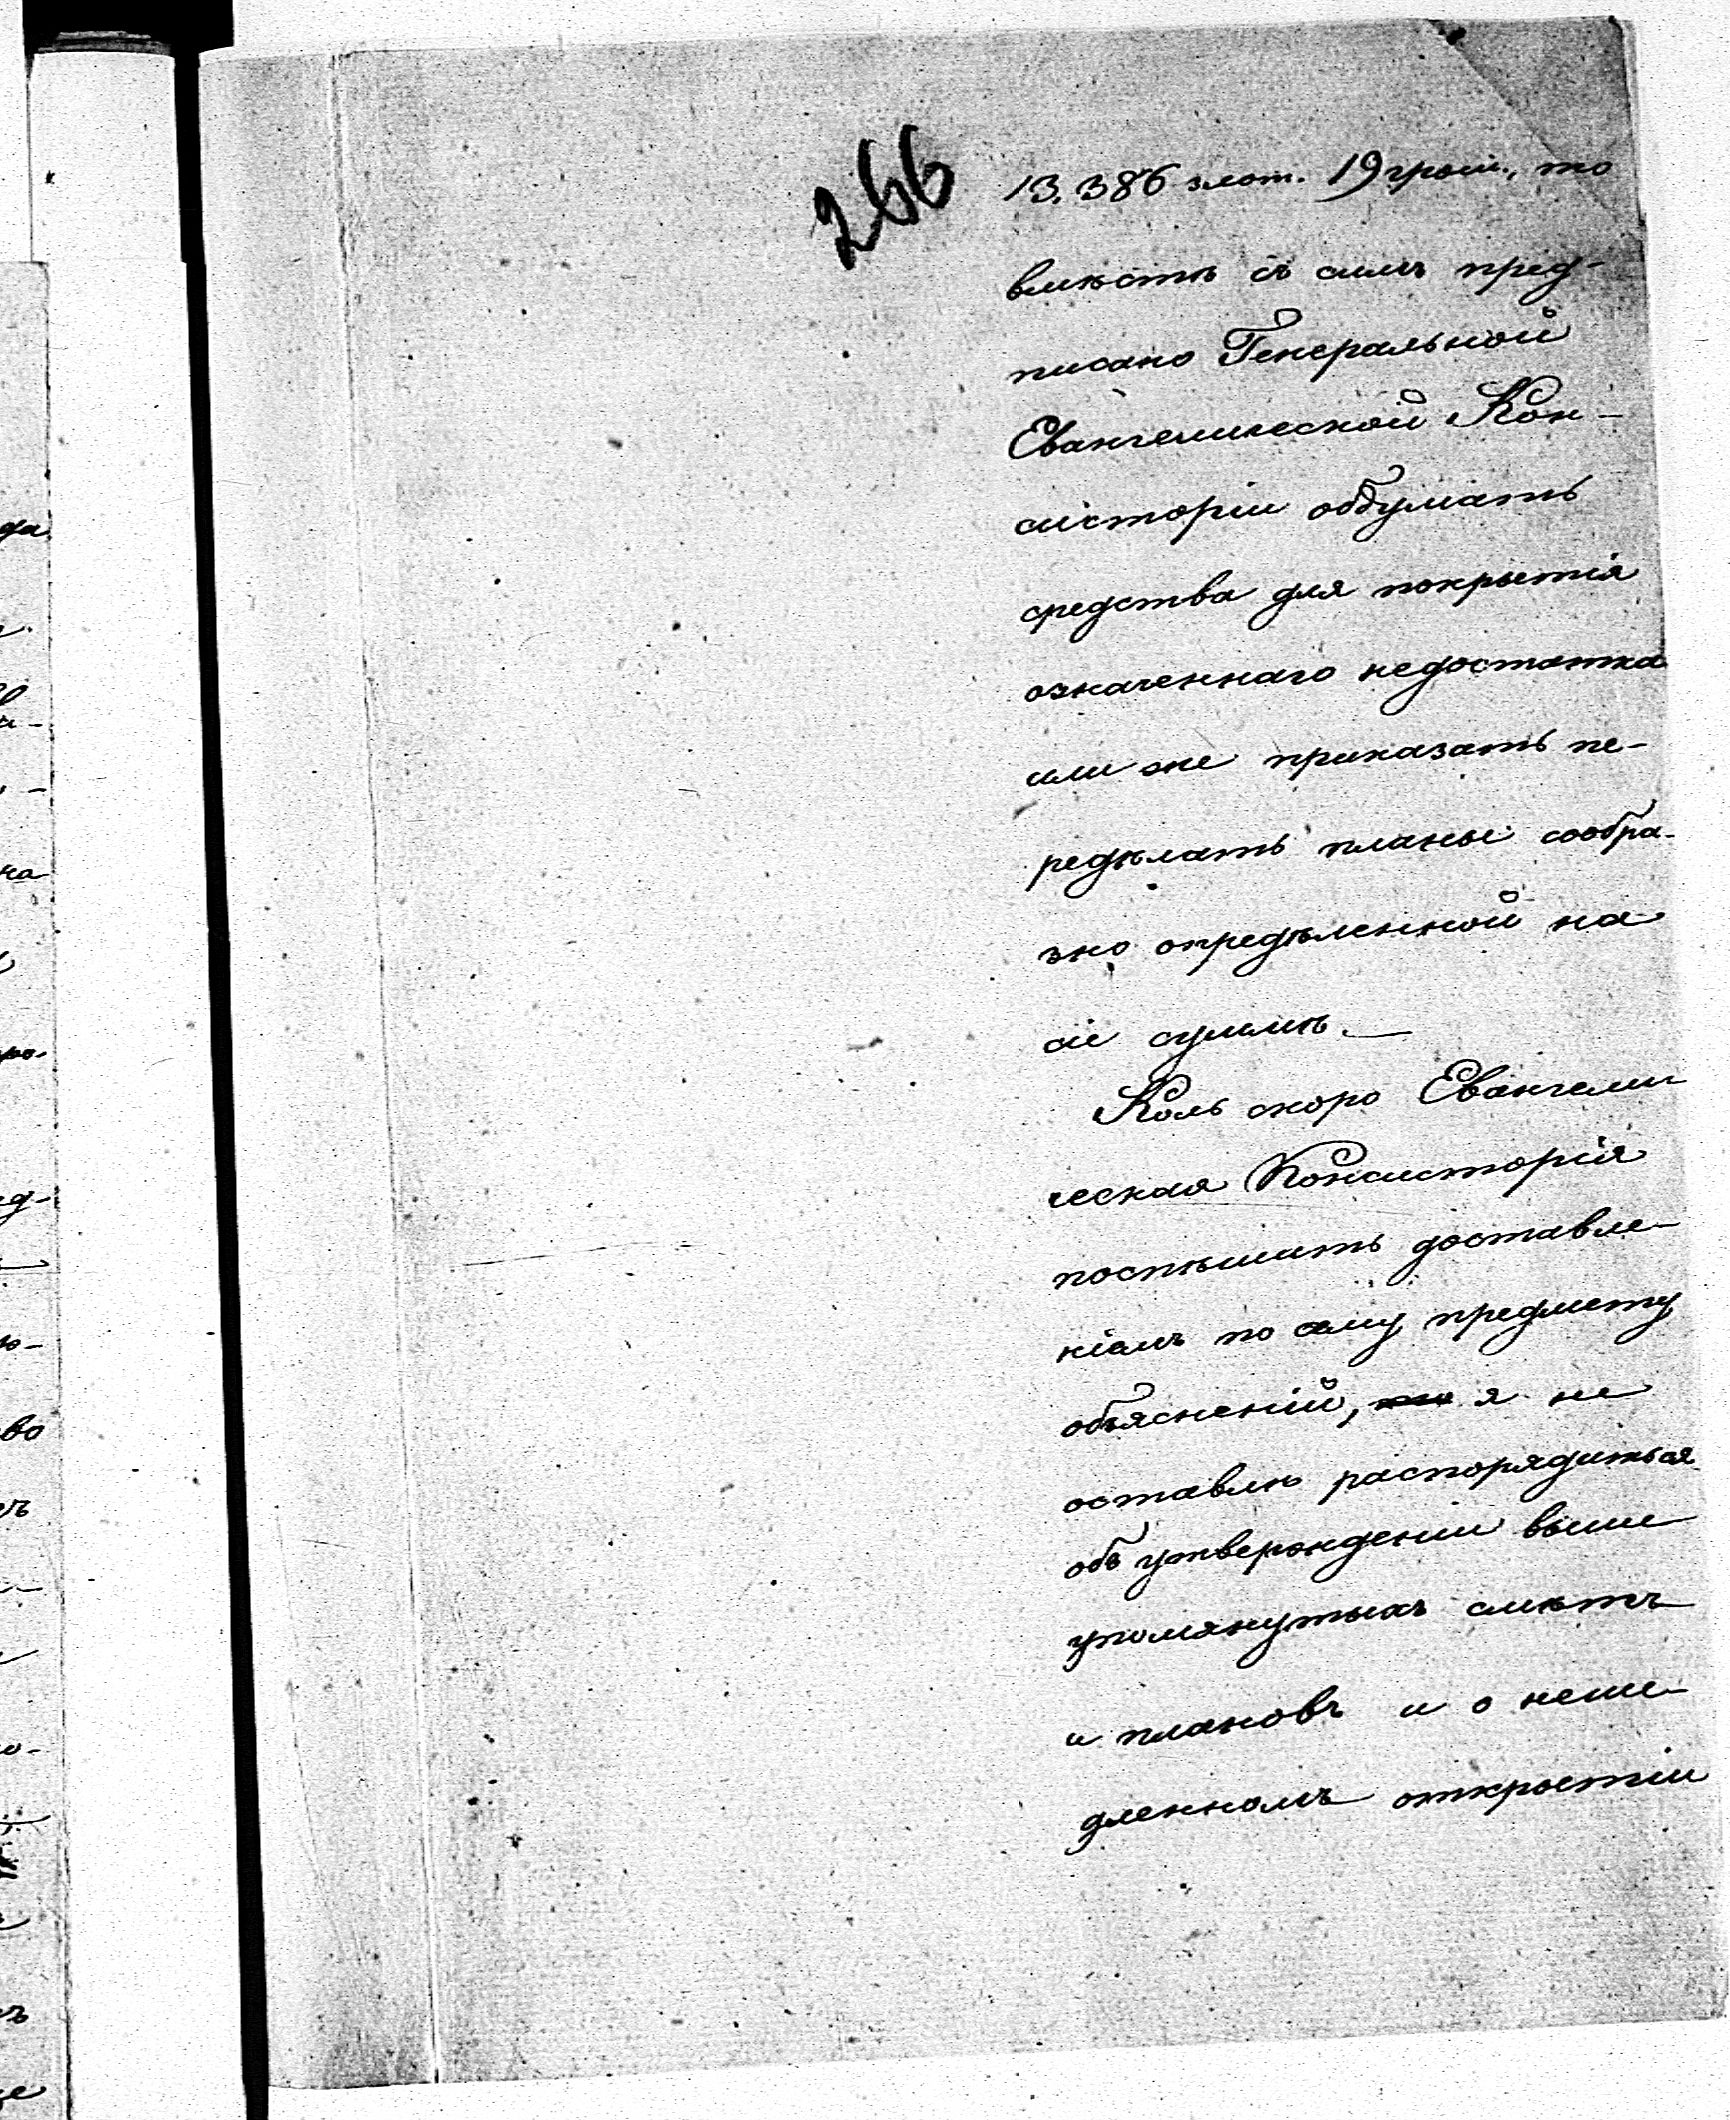 266
13.386 злот. 19 грош., то
вмѣстѣ съ симъ пред-
писано Генеральной
Евангелической Кон-
систоріи обдумать
средства для покрытія
означеннаго недостатка
или же приказать пе-
редѣлать планы сообра-
зно опредѣленной на
сіе суммѣ.—
Коль скоро Евангели
ческая Консисторія
поспѣшитъ доставле-
ніемъ по сему предмету
объясненій, то я не
оставлю распорядиться
объ утвержденіи выше
упомянутыхъ смѣтъ
и плановъ и о неме-
дленномъ открытіи